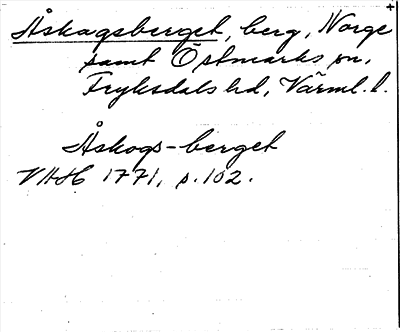 Åskagsberget, berg, Norge
samt Östmarks sn,
Fryksdals hd, Värml. l.
Åskogs-berget
VHH 1771, s. 102.